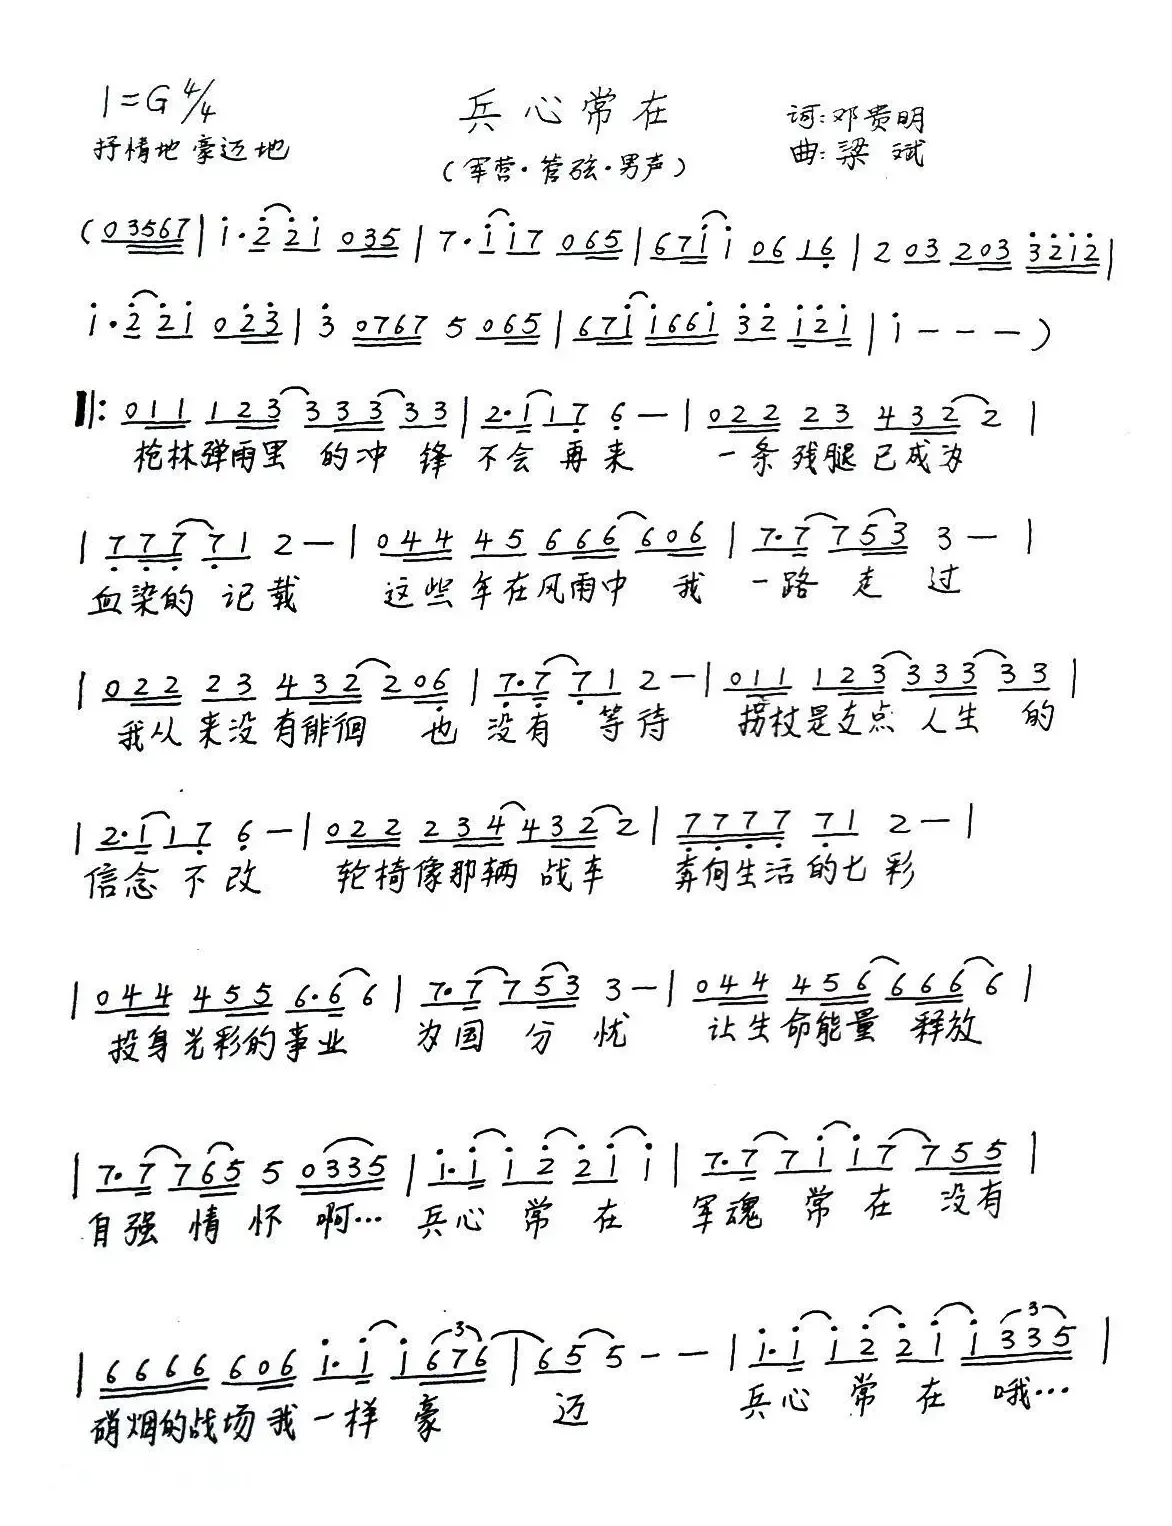 1=G 4/4
兵心常在
词:邓贵明
抒情地 豪迈地
(军营·管弦·男声)
曲:梁 斌
(03567|i·2 2i 035|7·i i7 065|67i i 06 16|2 03 203 3212|
i·2 2i 023|3 0767 5 065|67i i66i 32 i2i|i - - - )
‖: 011 123 333 33|2·1 17 6 -|022 23 432 2|
枪林弹雨里 的冲 锋 不会 再来 一条残腿已成为
|777 71 2 -|044 45 666 606|7·7 753 3 -|
血染的 记载 这些年在风雨中 我 一路 走 过
|022 23 432 206|7·7 71 2 -|011 123 333 33|
我从来没有徘徊 也 没有 等待 拐杖是支点 人生 的
|2·1 17 6 -|022 234 432 2|7777 71 2 -|
信念 不 改 轮椅像那辆 战车 奔向生活的七彩
|044 455 6·6 6|7·7 753 3 -|044 456 666 6|
投身光彩的事业 为国 分 忧 让生命能量 释放
|7·7 765 5 0335|i·i i2 2i i|7·7 7i i7 755|
自强 情 怀 啊… 兵心 常 在 军魂 常 在 没有
|6666 606 i·i i676|65 5 - -|i·i i2 2i i335|
硝烟的战场我一样 豪 迈 兵心 常 在 哦…